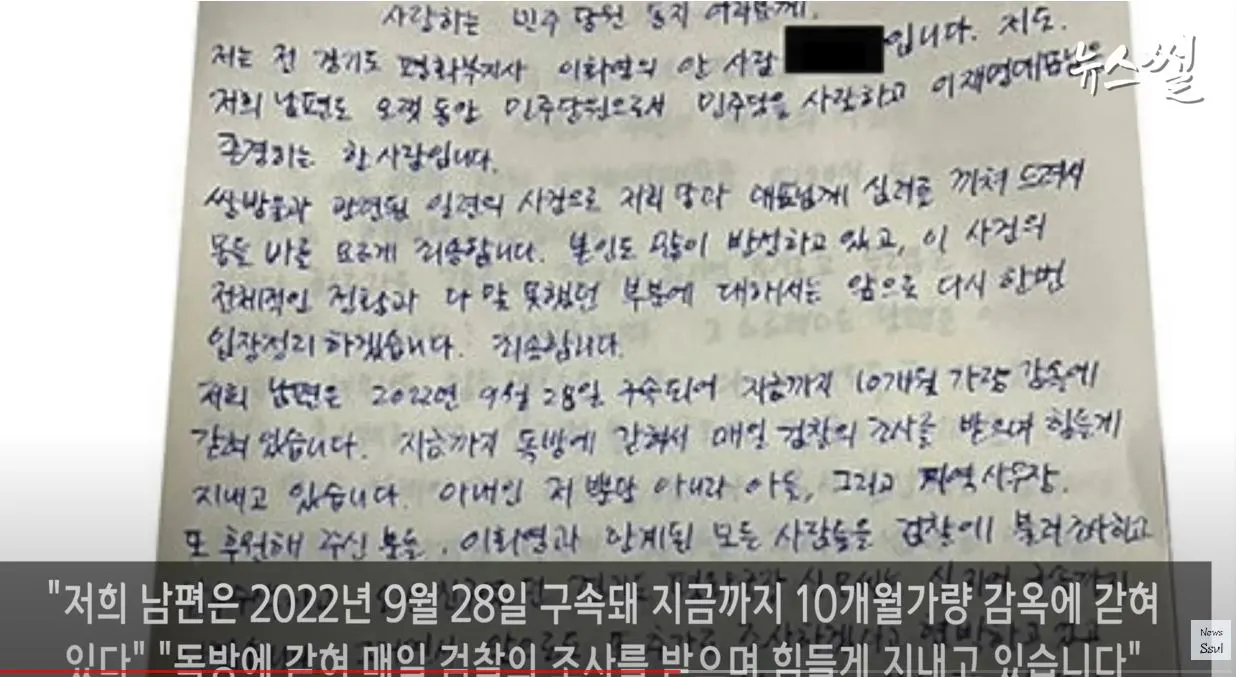 사랑하는 민주당원 동지 여러분께.
저는 전 경기도 평화부지사 이화영의 안 사람 입니다. 저도.
뉴스썰
저희 남편도 오랫동안 민주당원으로서 민주당을 사랑하고 이재명대표님을
존경하는 한 사람입니다.
쌍방울과 관련된 일련의 사건으로 저희 당과 대표님께 심려를 끼쳐 드려서
몸둘 바를 모르게 죄송합니다. 본인도 많이 반성하고 있고, 이 사건의
전체적인 정황과 다 말 못했던 부분에 대해서는 앞으로 다시 한번
입장정리 하겠습니다. 죄송합니다.
저희 남편은 2022년 9월 28일 구속되어 지금까지 10개월 가량 감옥에
갇혀 있습니다. 지금까지 독방에 갇혀서 매일 검찰의 조사를 받으며 힘들게
지내고 있습니다. 아내인 저 뿐만 아니라 아들, 그리고 지역 사무장,
또 후원해 주신 분들, 이화영과 관계된 모든 사람들을 검찰에 불러 조사하고
"저희 남편은 2022년 9월 28일 구속돼 지금까지 10개월가량 감옥에 갇혀
있다" "독방에 갇혀 매일 검찰의 조사를 받으며 힘들게 지내고 있습니다"
News
Ssul